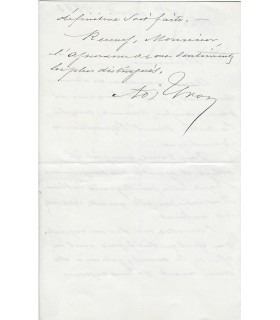 définitive soit faite. —
Recevez, Monsieur,
l'assurance de mes sentiments
les plus distingués.